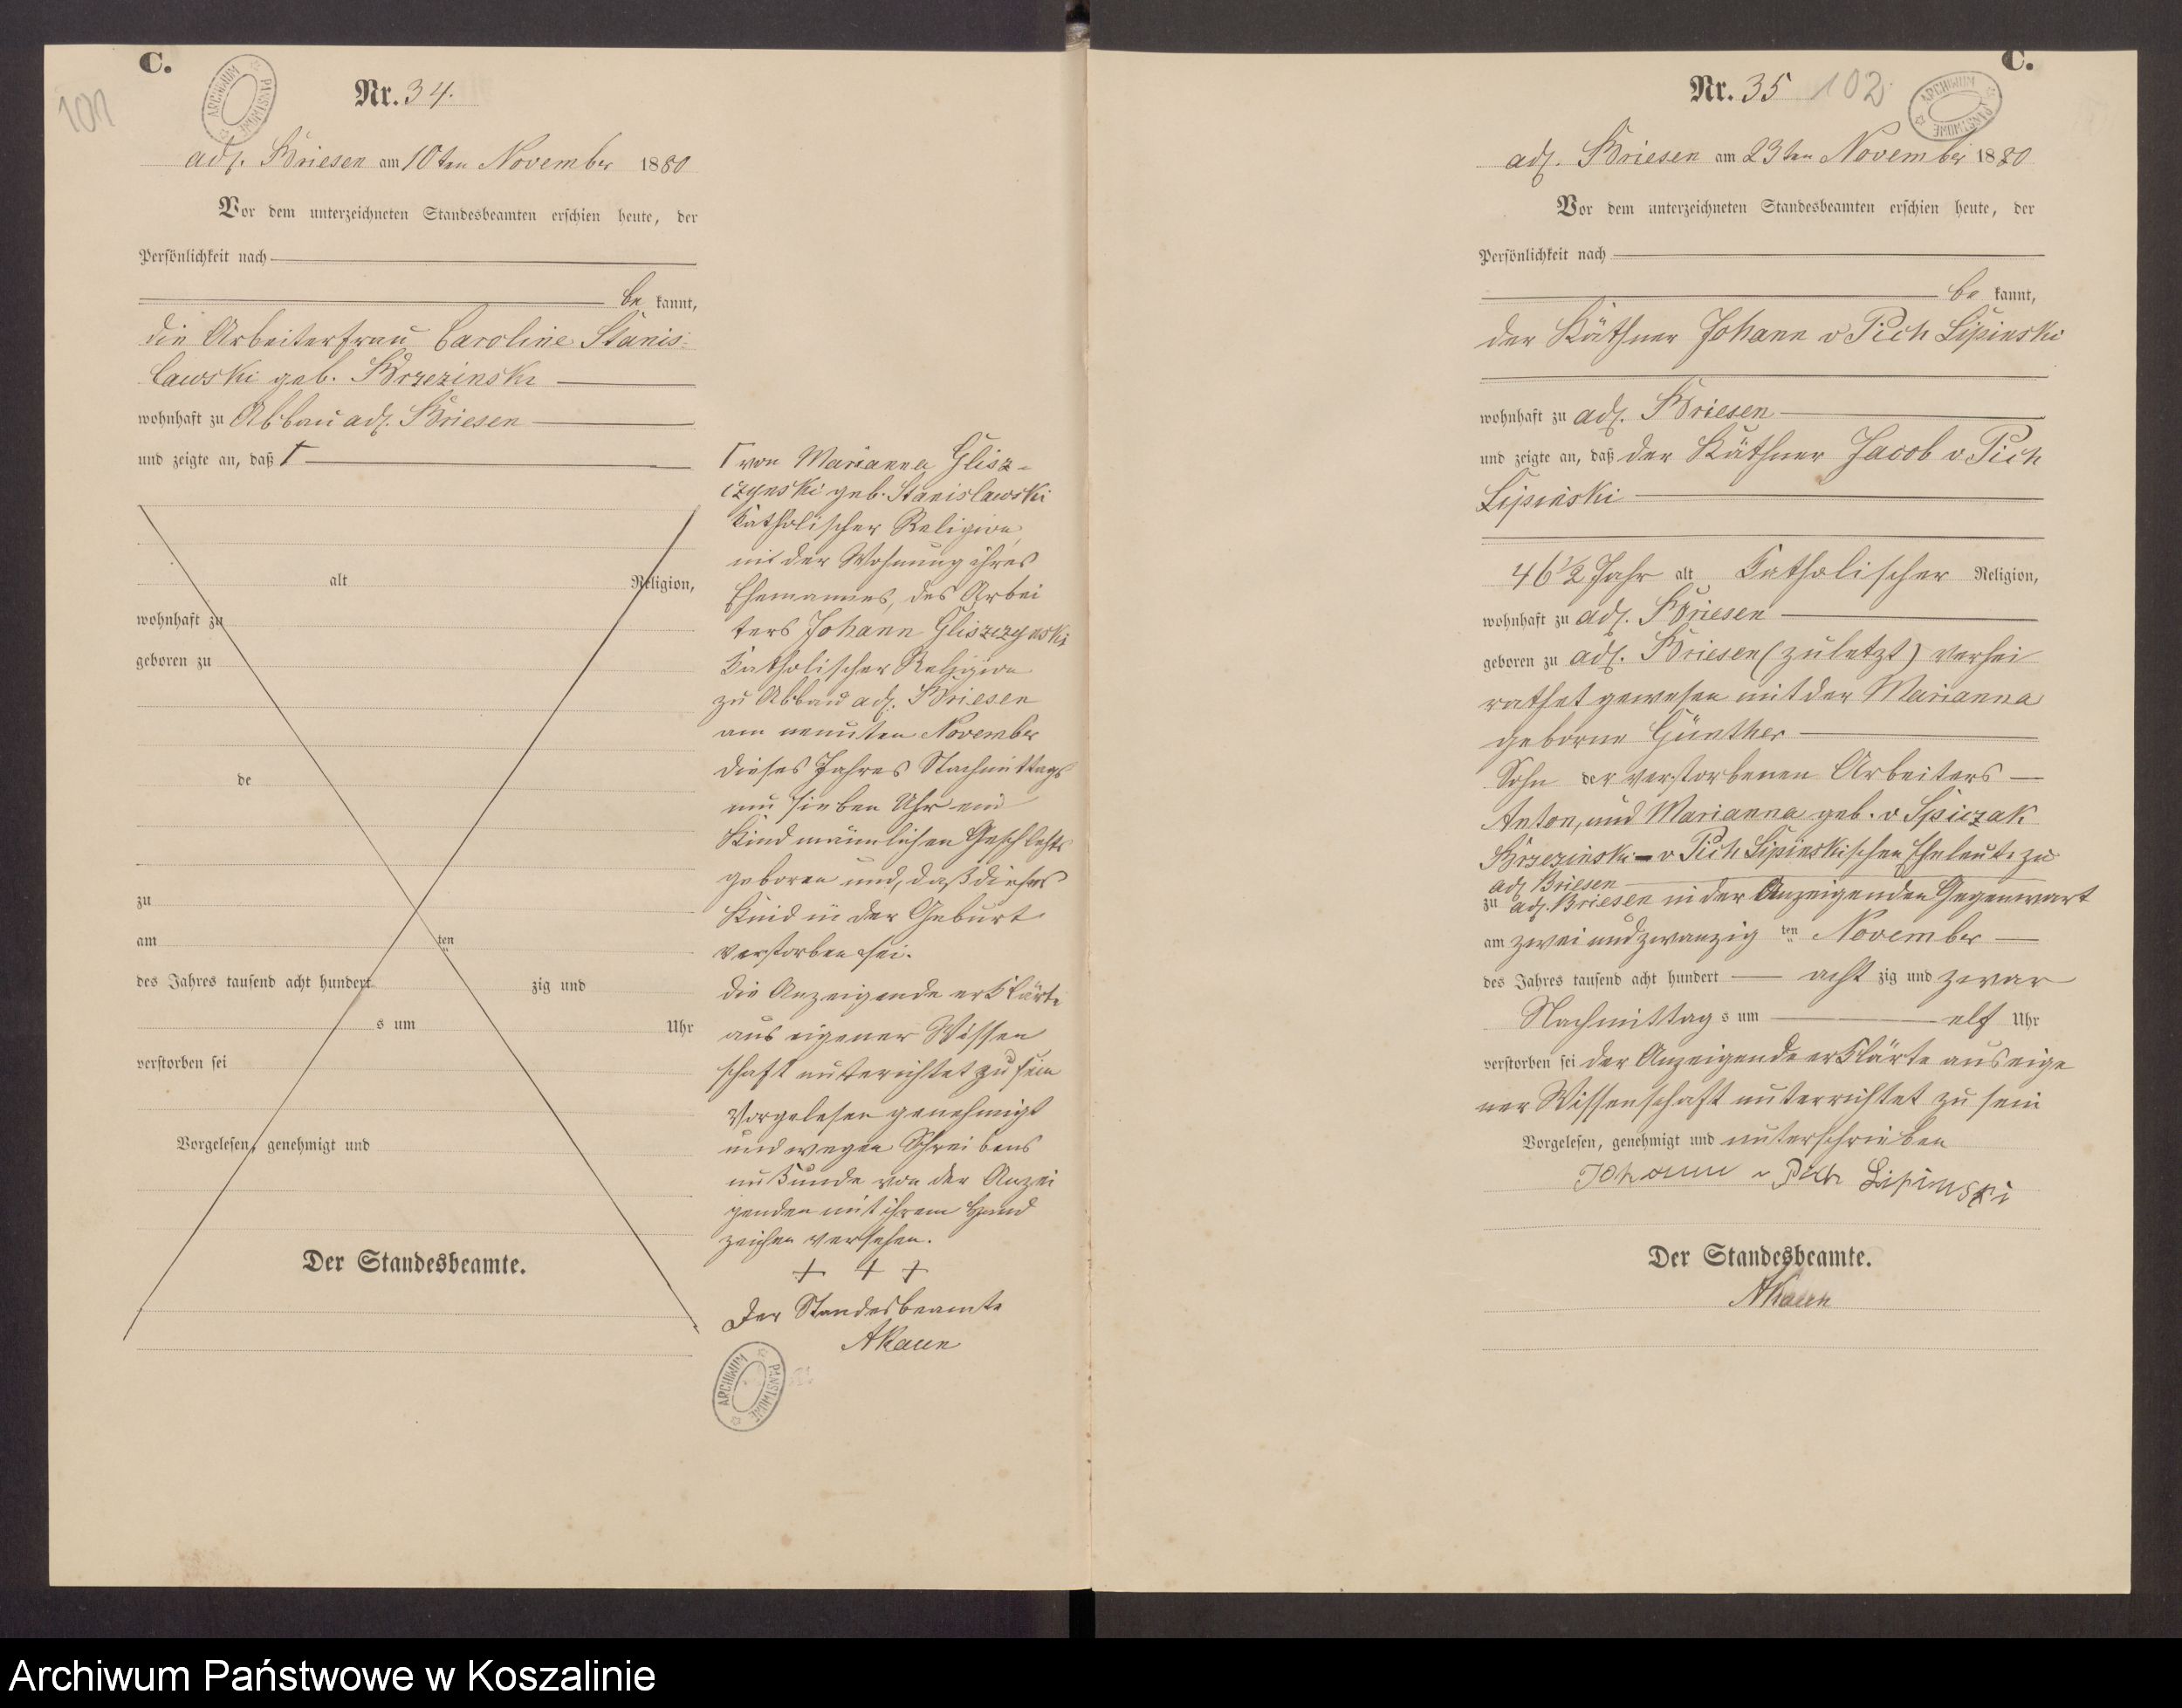 C.
101
ARCHIWUM PAŃSTWOWE
Nr. 34.
adl. Briesen am 10ten November 1880
Vor dem unterzeichneten Standesbeamten erschien heute, der
Persönlichkeit nach
be kannt,
die Arbeiterfrau Caroline Stanis-
lawski geb. Brzezinski
wohnhaft zu Abbau adl. Briesen
und zeigte an, daß
alt Religion,
wohnhaft zu
geboren zu
de
zu
am ten
des Jahres tausend acht hundert zig und
s um Uhr
verstorben sei
Vorgelesen, genehmigt und
Der Standesbeamte.
von Marianna Glisz-
czynski geb. Stanislawski
katholischer Religion,
in der Wohnung ihres
Ehemannes, des Arbei
ters Johann Gliszczynski
katholischer Religion
zu Abbau adl. Briesen
am neunten November
dieses Jahres Nachmittags
um sieben Uhr ein
Kind männlichen Geschlechts
geboren und, daß dieses
Kind in der Geburt
verstorben sei.
die Anzeigende erklärte
aus eigener Wissen
schaft unterichtet zu sein
Vorgelesen genehmigt
und wegen Schreibens
unkunde von der Anzei
genden mit ihrem Hand
zeichen versehen.
+ + +
Der Standesbeamte
AKauen
ARCHIWUM PAŃSTWOWE
C.
Nr. 35 102
ARCHIWUM PAŃSTWOWE
adl. Briesen am 23ten November 1880
Vor dem unterzeichneten Standesbeamten erschien heute, der
Persönlichkeit nach
be kannt,
der Käthner Johann v Pich Lipinski
wohnhaft zu adl. Briesen
und zeigte an, daß der Käthner Jacob v. Pich
Lipinski
46½ Jahr alt Katholischer Religion,
wohnhaft zu adl. Briesen
geboren zu adl. Briesen (zuletzt) verhei
rathet gewesen mit der Marianna
geborne Günther
Sohn der verstorbenen Arbeiters
Anton, und Marianna geb. v Spiczak
Brzezinski - v Pich Lipinskischen Eheleute zu
adl Briesen
zu adl. Briesen in der Anzeigenden Gegenwart
am zwei und zwanzig ten November
des Jahres tausend acht hundert acht zig und zwar
Nachmittag s um elf Uhr
verstorben sei der Anzeigende erklärte aus eige
ner Wissenschaft unterrichtet zu sein
Vorgelesen, genehmigt und unterschrieben
Johann v Pich Lipinski
Der Standesbeamte.
AKauen
Archiwum Państwowe w Koszalinie